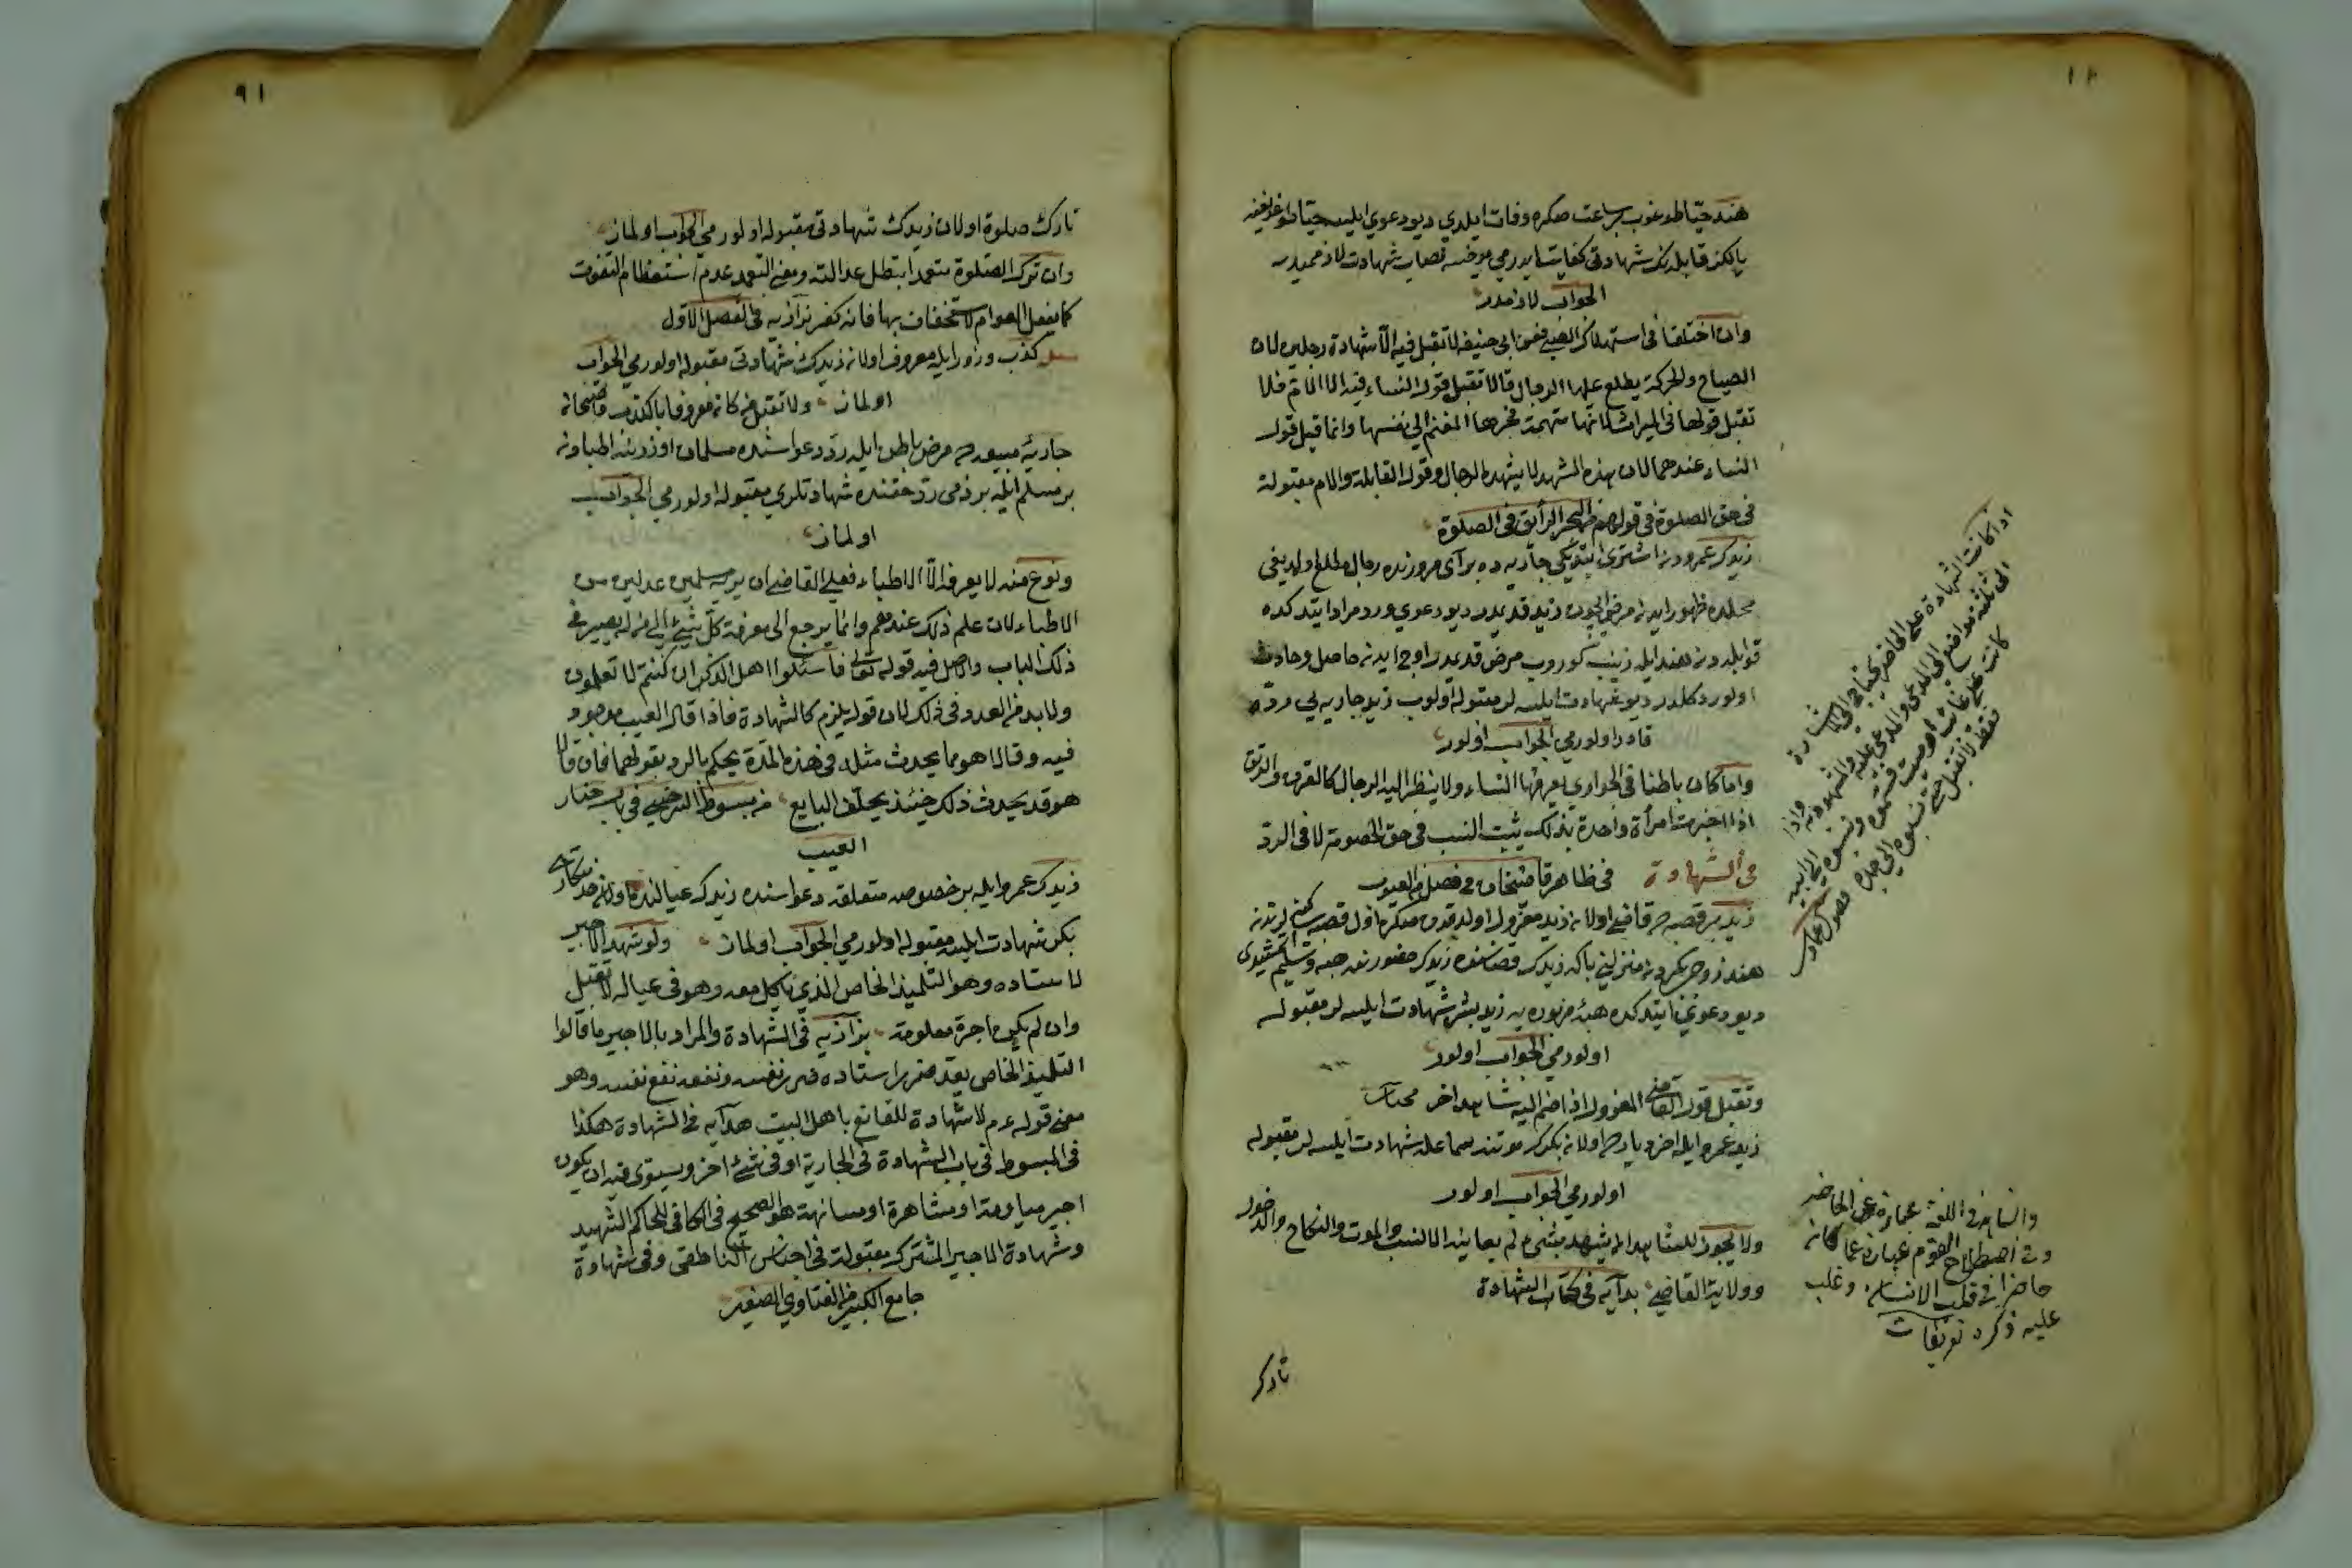 هند حيتا طوغوب بر ساعت صكره وفات ايلدي ديو دعوي ايلسه حيتا طوغديغنه
يالكز قابله نك شهادتى كفايت ايدرمى يوخسه نصاب شهادت لازميدر
الجواب لازمدر
وان اختلفا فى استهلال الصبى فعن ابى حنيفه لا تقبل فيه الا شهادة رجلين لان
الصياح والحركة يطلع عليها الرجال قالا تقبل قول النساء فيه الا الام فلا
تقبل قولها فى الميراث لانها متهمة بجرها المغنم الى نفسها وانما قبل قول
النساء عندهما لان هذه المشهد لا يشهده الرجال وقول القابلة والام مقبولة
فى حق الصلوة فى قولهم من البحر الرائق فى الصلوة
زيدك عمرودن اشترى ايتديكى جاريه ده
محلده ظهور ايدن مرض ايچون زيد قديمدر ديو دعوي ورد مراد ايتدكده
قوابلدن هند ايله زينب كوروب مرض قديمدر اوچ ايدنه حاصل وحادث
اولور دكلدر ديو شهادت ايلسه لر مقبوله اولوب زيد جاريه يى رده
قادر اولورمى الجواب اولور
واما كان باطنا فى الجواري يعرفها النساء ولا ينظر اليه الرجال كالقرن والرتق
اذا اخبرت امرأة واحدة بذلك يثبت النسب فى حق الخصومة لا فى الرد
فى الشهادة فى ظاهر قاضيخان فى فصل العيوب
زيد بر قصبه ده قاضى اولان زيد معزول اولدقدن صكره اول قصبه
هند زوجى بكره منزلنى باكه زيدك قضاسنده زيدك حضورنده هبه وتسليم ايتمشيدى
ديو دعوى ايتدكده هبه مزبوره يه زيد بشر شهادت ايلسه لر مقبوله
اولورمى الجواب اولور
وتقبل قول القاضى المعزول اذا ضم اليه شاهد اخر
زيد عمرو ايله اخر ديارده اولان بكرك موتنه سماعله شهادت ايلسه لر مقبوله
اولورمى الجواب اولور
ولا يجوز للشاهد ان يشهد بشىء لم يعاينه الا النسب والموت والنكاح والدخول
وولاية القاضى هدايه فى كتاب الشهادة
تارك
اذا كانت الشهادة على الحاضر يحتاج الى الاشارة
الى ثلثة مواضع الى المدعى والمدعى عليه والمشهود به واذا
كانت على غائب او ميت فسموه ونسبوه الى ابيه
فقط لا تقبل حتى نسبوه الى جده فصول عمادى
والشاهد فى اللغة عبارة عن الحاضر
وفى اصطلاح القوم عبارة عما كان
حاضرا فى قلب الانسان وغلب
عليه ذكره تعريفات
٩١
تارك صلوة اولان زيدك شهادتى مقبوله اولورمى الجواب اولماز
وان ترك الصلوة متعمدا تبطل عدالته ومعنى التعمد عدم استعظام التفويت
كما يفعل العوام لا استخفاف بها فانه كفر بزازيه فى الفصل الاول
كذب وزور ايله معروف اولان زيدك شهادتى مقبوله اولورمى الجواب
اولماز ولا تقبل من كان معروفا بالكذب قاضيخان
جاريه مبيعه ده مرض باطن ايله رد دعواسنده مسلمان اوزرينه اطبادن
بر مسلم ايله بر ذمى رد حقنده شهادتلرى مقبوله اولورمى الجواب
اولماز
ونوع منه لا يعرفه الا الاطباء فعلى القاضى ان يريه مسلمين عدلين من
الاطباء لان علم ذلك عندهم وانما يرجع الى معرفة كل شىء الى من له بصيرة فى
ذلك الباب واصل فيه قوله تعالى فاسئلوا اهل الذكر ان كنتم لا تعلمون
ولا بد من العدد فى ذلك لان قوله يلزم كالشهادة فاذا قالا العيب موجود
فيه وقالا هو مما يحدث مثله فى هذه المدة يحكم بالرد بقولهما فان قالا
هو قد يحدث ذلك حينئذ يحلف البايع من مبسوط السرخسى فى باب خيار
العيب
زيدك عمرو ايله بر خصوصه متعلقه دعواسنده زيدك عيالنده اولان خدمتكارى
بكر شهادت ايلسه مقبوله اولورمى الجواب اولماز ولو شهد الاجير
لاستاده وهو التلميذ الخاص الذي يأكل معه وهو فى عياله لا تقبل
وان لم يكن باجرة معلومة بزازيه فى الشهادة والمراد بالاجير ما قالوا
التلميذ الخاص يعد ضرر استاده ضرر نفسه ونفعه نفع نفسه وهو
معنى قوله عم لا شهادة للقانع باهل البيت هدايه فى الشهادة هكذا
فى المبسوط فى باب الشهادة فى الجارية او فى شىء اخر ويستوى فيه ان يكون
اجير مياومة او مشاهرة او مسانهة هو الصحيح فى الكافى للحاكم الشهيد
وشهادة الاجير المشترك مقبولة فى اجناس الناطفى وفى شهادة
جامع الكبير من الفتاوي الصغير